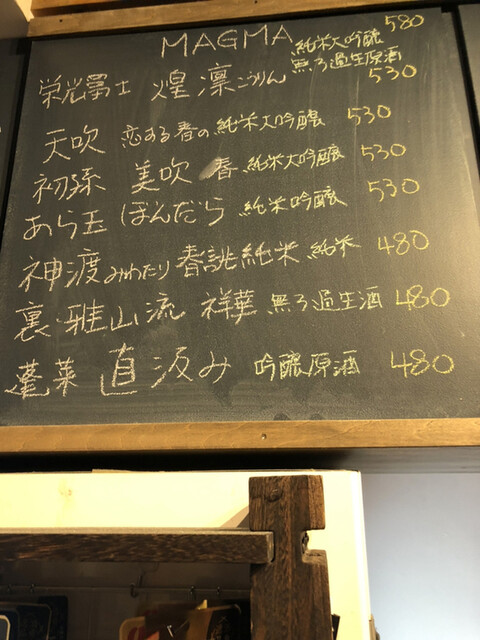 MAGMA 純米大吟醸 580
無ろ過生原酒
栄光冨士 煌凛こうりん 530
天吹 恋する春の純米大吟醸 530
初孫 美吹 春 純米大吟醸 530
あら玉 ぼんだら 純米吟醸 530
神渡みわたり 春誂純米 純米 480
裏・雅山流 祥華 無ろ過生酒 480
蓬莱 直汲み 吟醸原酒 480